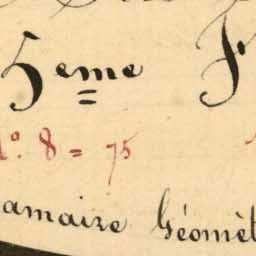 5eme F
1º. 8 = 75
amaire Géomèt